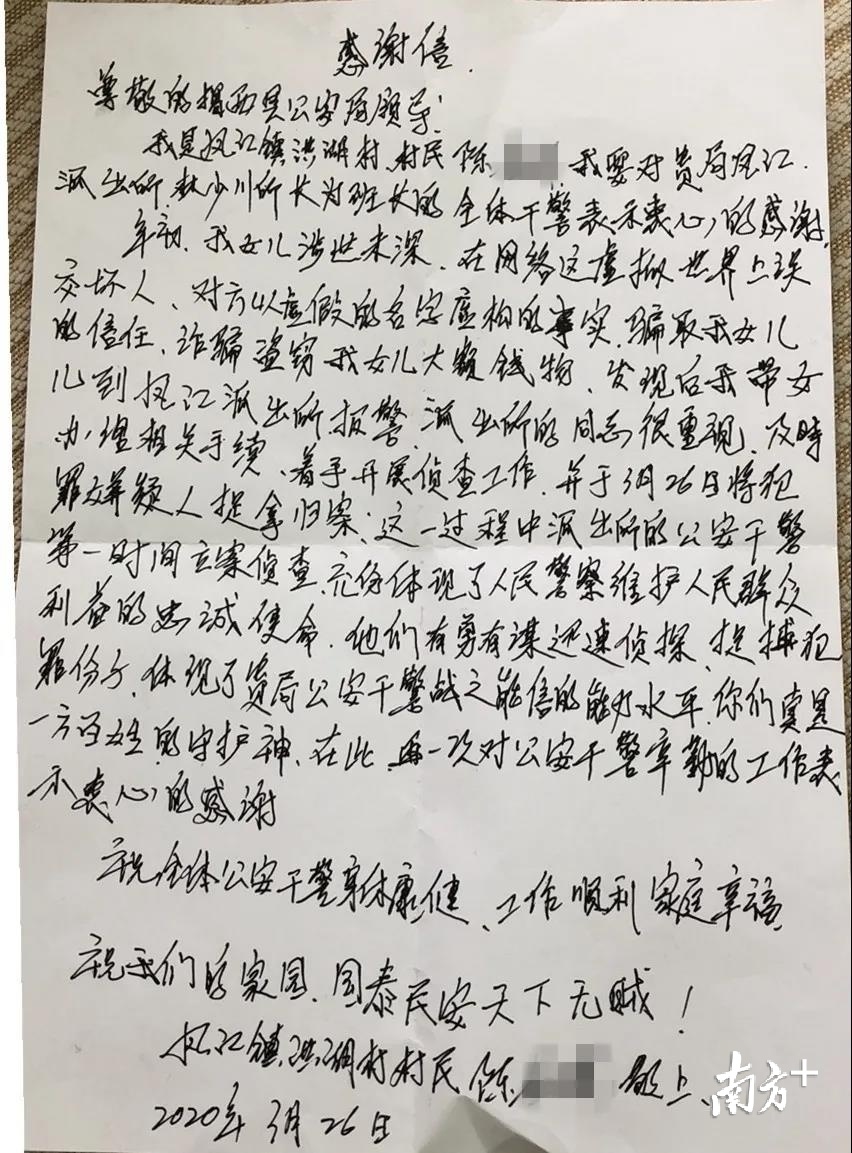 感谢信.
尊敬的揭西县公安局领导:
我是凤江镇洪湖村.村民陈 我要对贵局凤江.
派出所.林少川所长为班长的全体干警表示衷心的感谢,
年初.我女儿涉世未深.在网络这虚拟世界上误
交坏人、对方以虚假的名字虚构的事实.骗取我女儿
的信任、诈骗盗窃我女儿大额钱物、发现后我带女
儿到凤江派出所报警.派出所的同志很重视.及时
办理相关手续、着手开展侦查工作.并于3月26日将犯
罪嫌疑人捉拿归案;这一过程中派出所的公安干警
第一时间立案侦查、充份体现了人民警察维护人民群众
利益的忠诚使命.他们有勇有谋迅速侦探、捉捕犯
罪份子.体现了贵局公安干警战之能信的能力水平.你们真是
一方百姓的守护神、在此.再一次对公安干警辛勤的工作表
示衷心的感谢
祝全体公安干警身体康健、工作顺利家庭幸福.
祝我们的家园.国泰民安天下无贼!
凤江镇洪湖村村民陈 敬上、
2020年3月26日
南方+